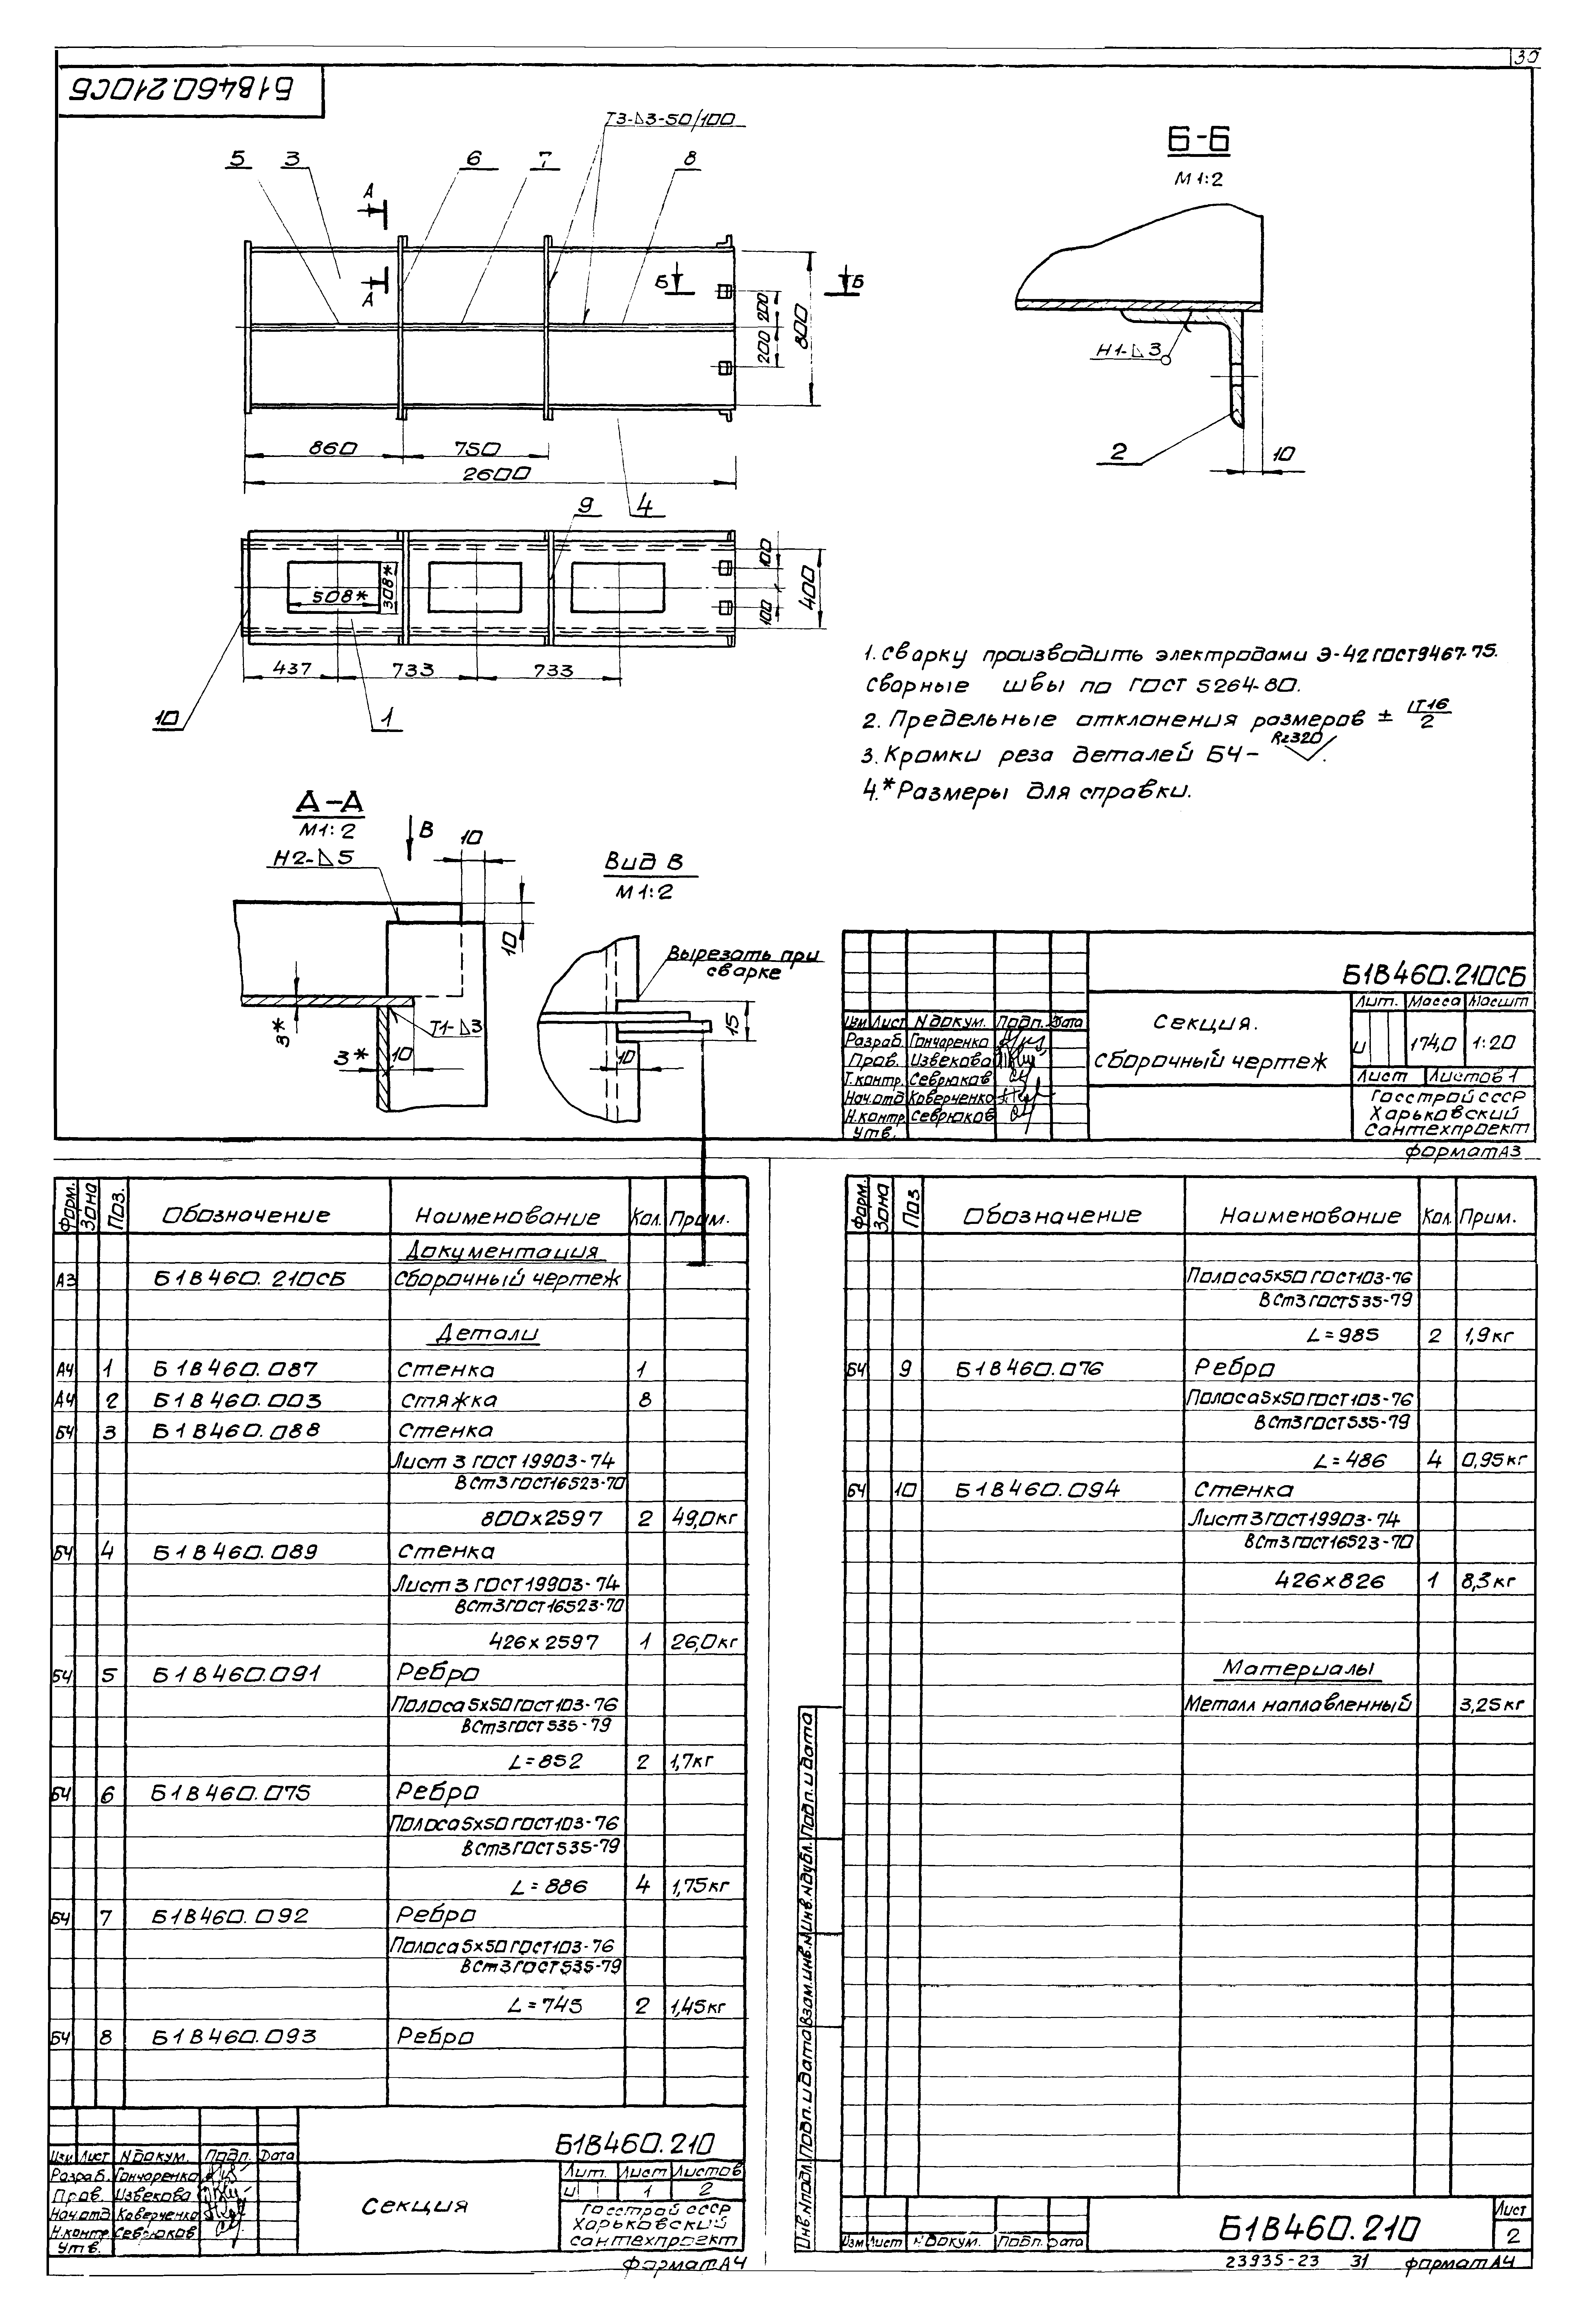 30
Б1В460.210СБ
Т3-⊿3-50/100
5 3 6 7 8
А
А
Б Б
200
200
800
860 750
2600
9 4
508*
308*
100
100
400
437 733 733
10 1
Б-Б
М 1:2
Н1-⊿3
2 10
1. Сварку производить электродами Э-42 ГОСТ9467-75.
Сварные швы по ГОСТ 5264-80.
2. Предельные отклонения размеров ± IT16/2
3. Кромки реза деталей БЧ- Rz320.
4.* Размеры для справки.
А-А
М1:2
В
10
Н2-⊿5
10
3*
Т1-⊿3
3* 10
Вид В
М 1:2
Вырезать при
сварке
15
10
Б1В460.210СБ
Секция.
Сборочный чертеж
Лит. Масса Масшт
И 174,0 1:20
Лист Листов 1
Госстрой СССР
Харьковский
Сантехпроект
Изм Лист N докум. Подп. Дата
Разраб. Гончаренко
Пров. Извекова
Т.контр. Севрюков
Нач.отд Коверченко
Н.контр. Севрюков
Утв.
формат А3
Форм. Зона Поз. Обозначение Наименование Кол. Прим.
Документация
А3 Б1В460.210СБ Сборочный чертеж
Детали
А4 1 Б1В460.087 Стенка 1
А4 2 Б1В460.003 Стяжка 8
БЧ 3 Б1В460.088 Стенка
Лист 3 ГОСТ 19903-74
ВСт3ГОСТ16523-70
800х2597 2 49,0кг
БЧ 4 Б1В460.089 Стенка
Лист 3 ГОСТ 19903-74
ВСт3ГОСТ16523-70
426х2597 1 26,0кг
БЧ 5 Б1В460.091 Ребро
Полоса 5х50 ГОСТ103-76
ВСт3ГОСТ535-79
L=852 2 1,7кг
БЧ 6 Б1В460.075 Ребро
Полоса 5х50 ГОСТ103-76
ВСт3ГОСТ535-79
L=886 4 1,75кг
БЧ 7 Б1В460.092 Ребро
Полоса 5х50 ГОСТ103-76
ВСт3ГОСТ535-79
L=745 2 1,45кг
БЧ 8 Б1В460.093 Ребро
Изм Лист N докум. Подп. Дата
Разраб. Гончаренко
Пров. Извекова
Нач.отд Коверченко
Н.контр. Севрюков
Утв.
Б1В460.210
Секция
Лит. Лист Листов
И 1 2
Госстрой СССР
Харьковский
сантехпроект
формат А4
Форм. Зона Поз Обозначение Наименование Кол. Прим.
Полоса 5х50 ГОСТ103-76
ВСт3ГОСТ535-79
L=985 2 1,9кг
БЧ 9 Б1В460.076 Ребро
Полоса 5х50 ГОСТ103-76
ВСт3ГОСТ535-79
L=486 4 0,95кг
БЧ 10 Б1В460.094 Стенка
Лист 3 ГОСТ 19903-74
ВСт3ГОСТ16523-70
426х826 1 8,3кг
Материалы
Металл наплавленный 3,25кг
Инв.Nподл. Подп. и дата Взам.инв.N Инв.Nдубл. Подп. и дата
Изм Лист N докум. Подп. Дата
Б1В460.210
Лист
2
23935-23 31 формат А4